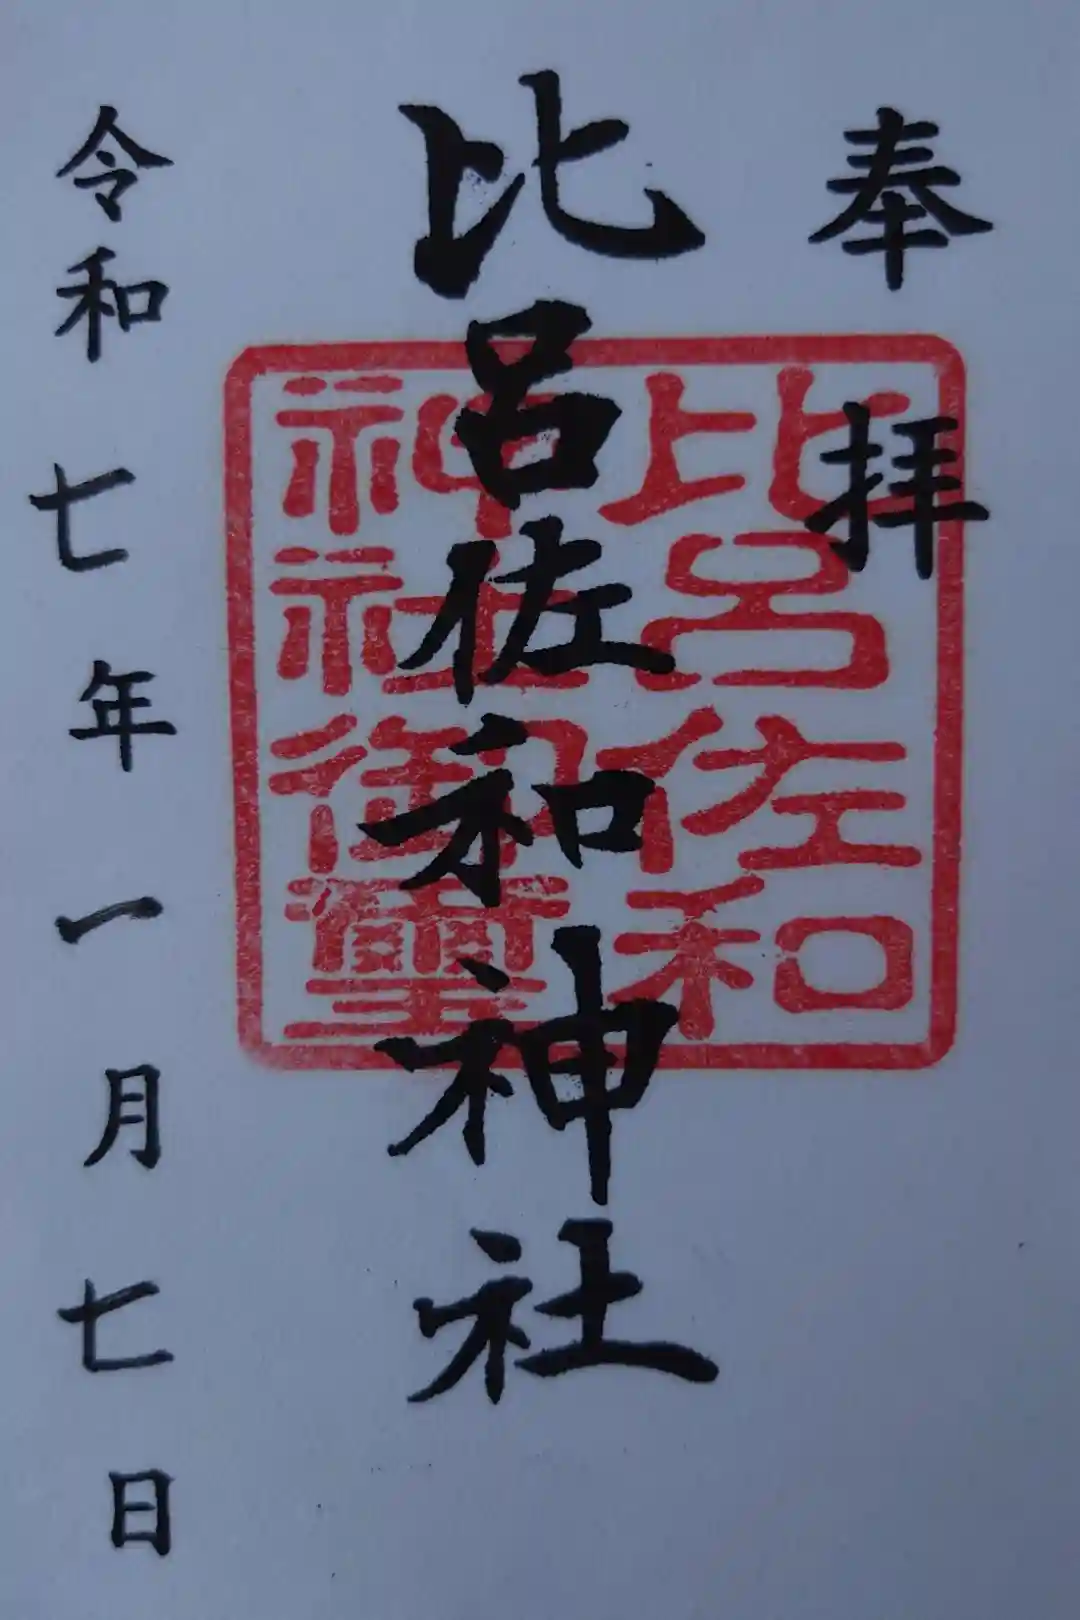 奉拝
比呂佐和神社
比呂佐和
神社御璽
令和七年一月七日